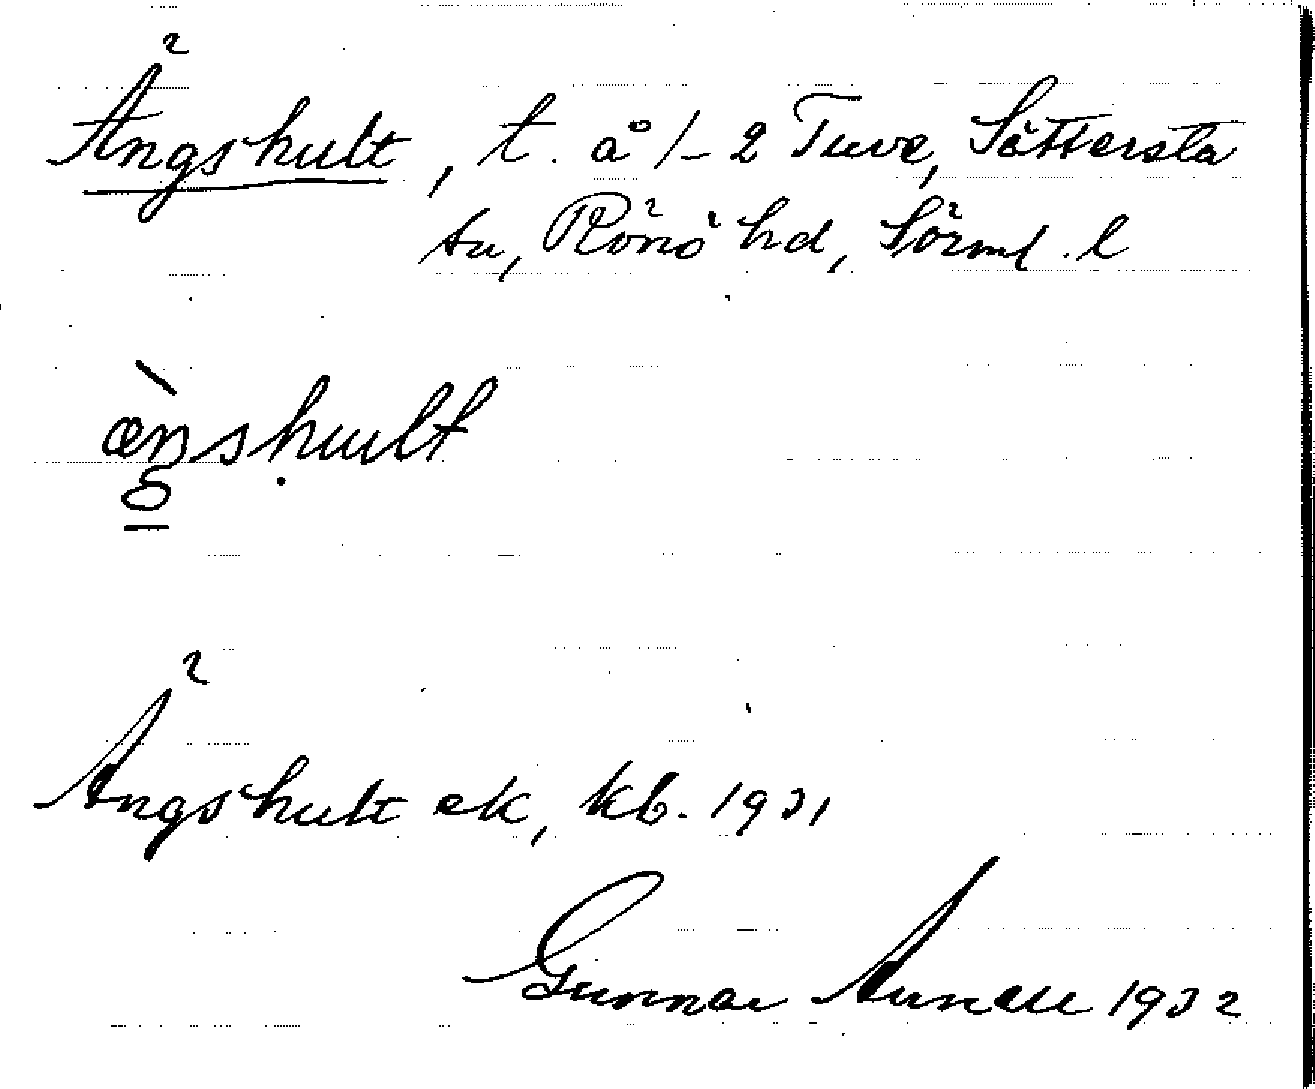 Ängshult, t. å 1-2 Tuve, Sättersta
sn, Rönö hd, Sörml. l
æ̀ŋshult
Ängshult ek, kb. 1931
Gunnar 1932